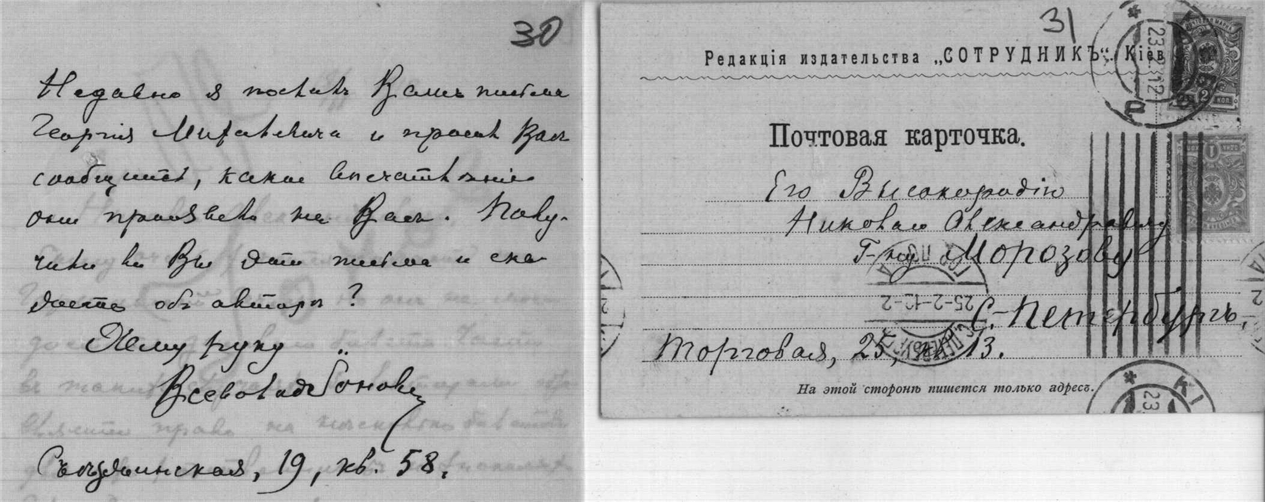 30
Недавно я послалъ Вамъ письма
Георгія Михаевича и просилъ Васъ
сообщить, какое впечатлѣніе
они произвели на Васъ. Полу-
чили ли Вы эти письма и ска-
жете объ авторѣ?
Жму руку
Всеволодъ
19, кв. 58.
31
Редакція издательства „СОТРУДНИКЪ“. Кіев
Почтовая карточка.
Его Высокородію
Николаю Александровичу
Г-ну Морозову
С.-Петербургъ,
Торговая, 25, кв. 13.
На этой сторонѣ пишется только адресъ.